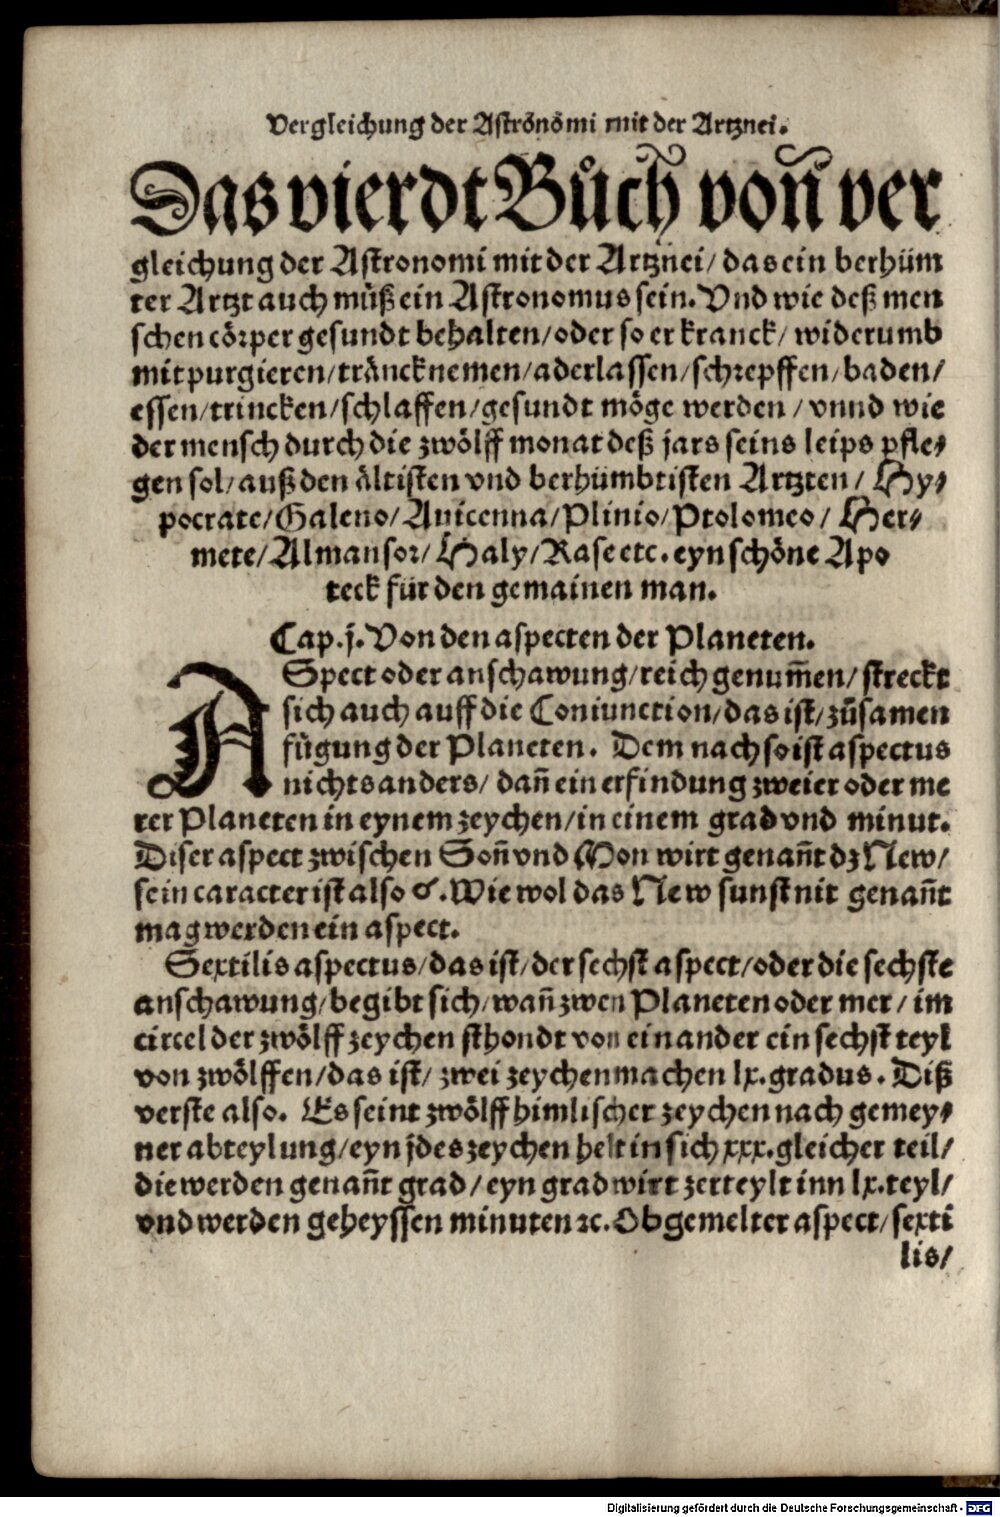 Vergleichung der Astrōnōmi mit der Artznei.
Das vierdt Bůch von̄ ver
gleichung der Astronomi mit der Artznei/ das ein berhüm
ter Artzt auch můß ein Astronomus sein. Vnd wie deß men
schen cörper gesundt behalten/ oder so er kranck/ widerumb
mit purgieren/ tränck nemen/ aderlassen/ schrepffen/ baden/
essen/ trincken/ schlaffen/ gesundt möge werden / vnnd wie
der mensch durch die zwölff monat deß jars seins leips pfle⸗
gen sol/ auß den ältisten vnd berhümbtisten Artzten / Hy⸗
pocrate/ Galeno/ Auicenna/ Plinio/ Ptolomeo / Her⸗
mete/ Almansor/ Haly/ Rase etc. eyn schöne Apo
teck für den gemainen man.
Cap. j. Von den aspecten der Planeten.
ASpect oder anschawung/ reich genum̄en/ streckt
sich auch auff die Coniunction/ das ist/ zůsamen
fügung der Planeten. Dem nach so ist aspectus
nichts anders/ dan̄ ein erfindung zweier oder me
rer Planeten in eynem zeychen/ in einem grad vnd minut.
Diser aspect zwischen Son̄ vnd Mon wirt genan̄t dz New/
sein caracter ist also ☌. Wie wol das New sunst nit genan̄t
mag werden ein aspect.
Sextilis aspectus/ das ist/ der sechst aspect/ oder die sechste
anschawung/ begibt sich/ wan̄ zwen Planeten oder mer / im
circel der zwölff zeychen sthondt von einander ein sechst teyl
von zwölffen/ das ist/ zwei zeychen machen lx. gradus. Diß
verste also. Es seint zwölff himlischer zeychen nach gemey⸗
ner abteylung/ eyn jdes zeychen helt in sich xxx. gleicher teil/
die werden genan̄t grad/ eyn grad wirt zerteylt inn lx. teyl/
vnd werden geheyssen minuten ꝛc. Obgemelter aspect/ sexti
lis/
Digitalisierung gefördert durch die Deutsche Forschungsgemeinschaft - DFG